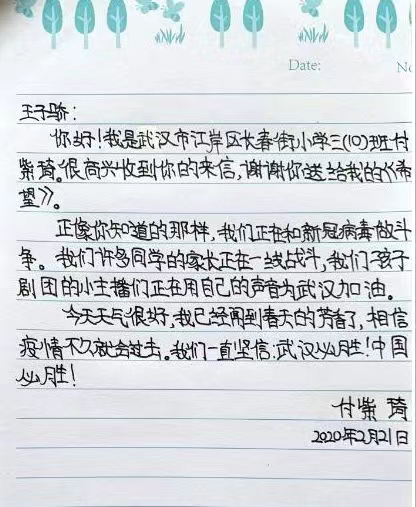 Date:
No
王子骄:
你好!我是武汉市江岸区长春街小学三(10)班付
紫琦。很高兴收到你的来信,谢谢你送给我的《希
望》。
正像你知道的那样,我们正在和新冠病毒做斗
争。我们许多同学的家长正在一线战斗,我们孩子
剧团的小主播们正在用自己的声音为武汉加油。
今天天气很好,我已经闻到春天的芳香了,相信
疫情不久就会过去。我们一直坚信:武汉必胜!中国
必胜!
付紫琦
2020年2月21日